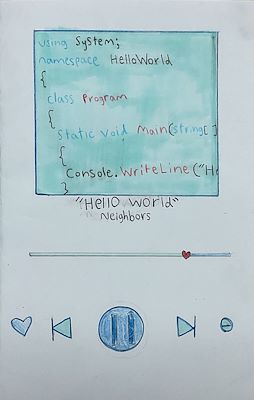 using System;
namespace HelloWorld
{
class Program
{
static void Main(string[]
{
Console.WriteLine("He
}
"Hello world"
Neighbors